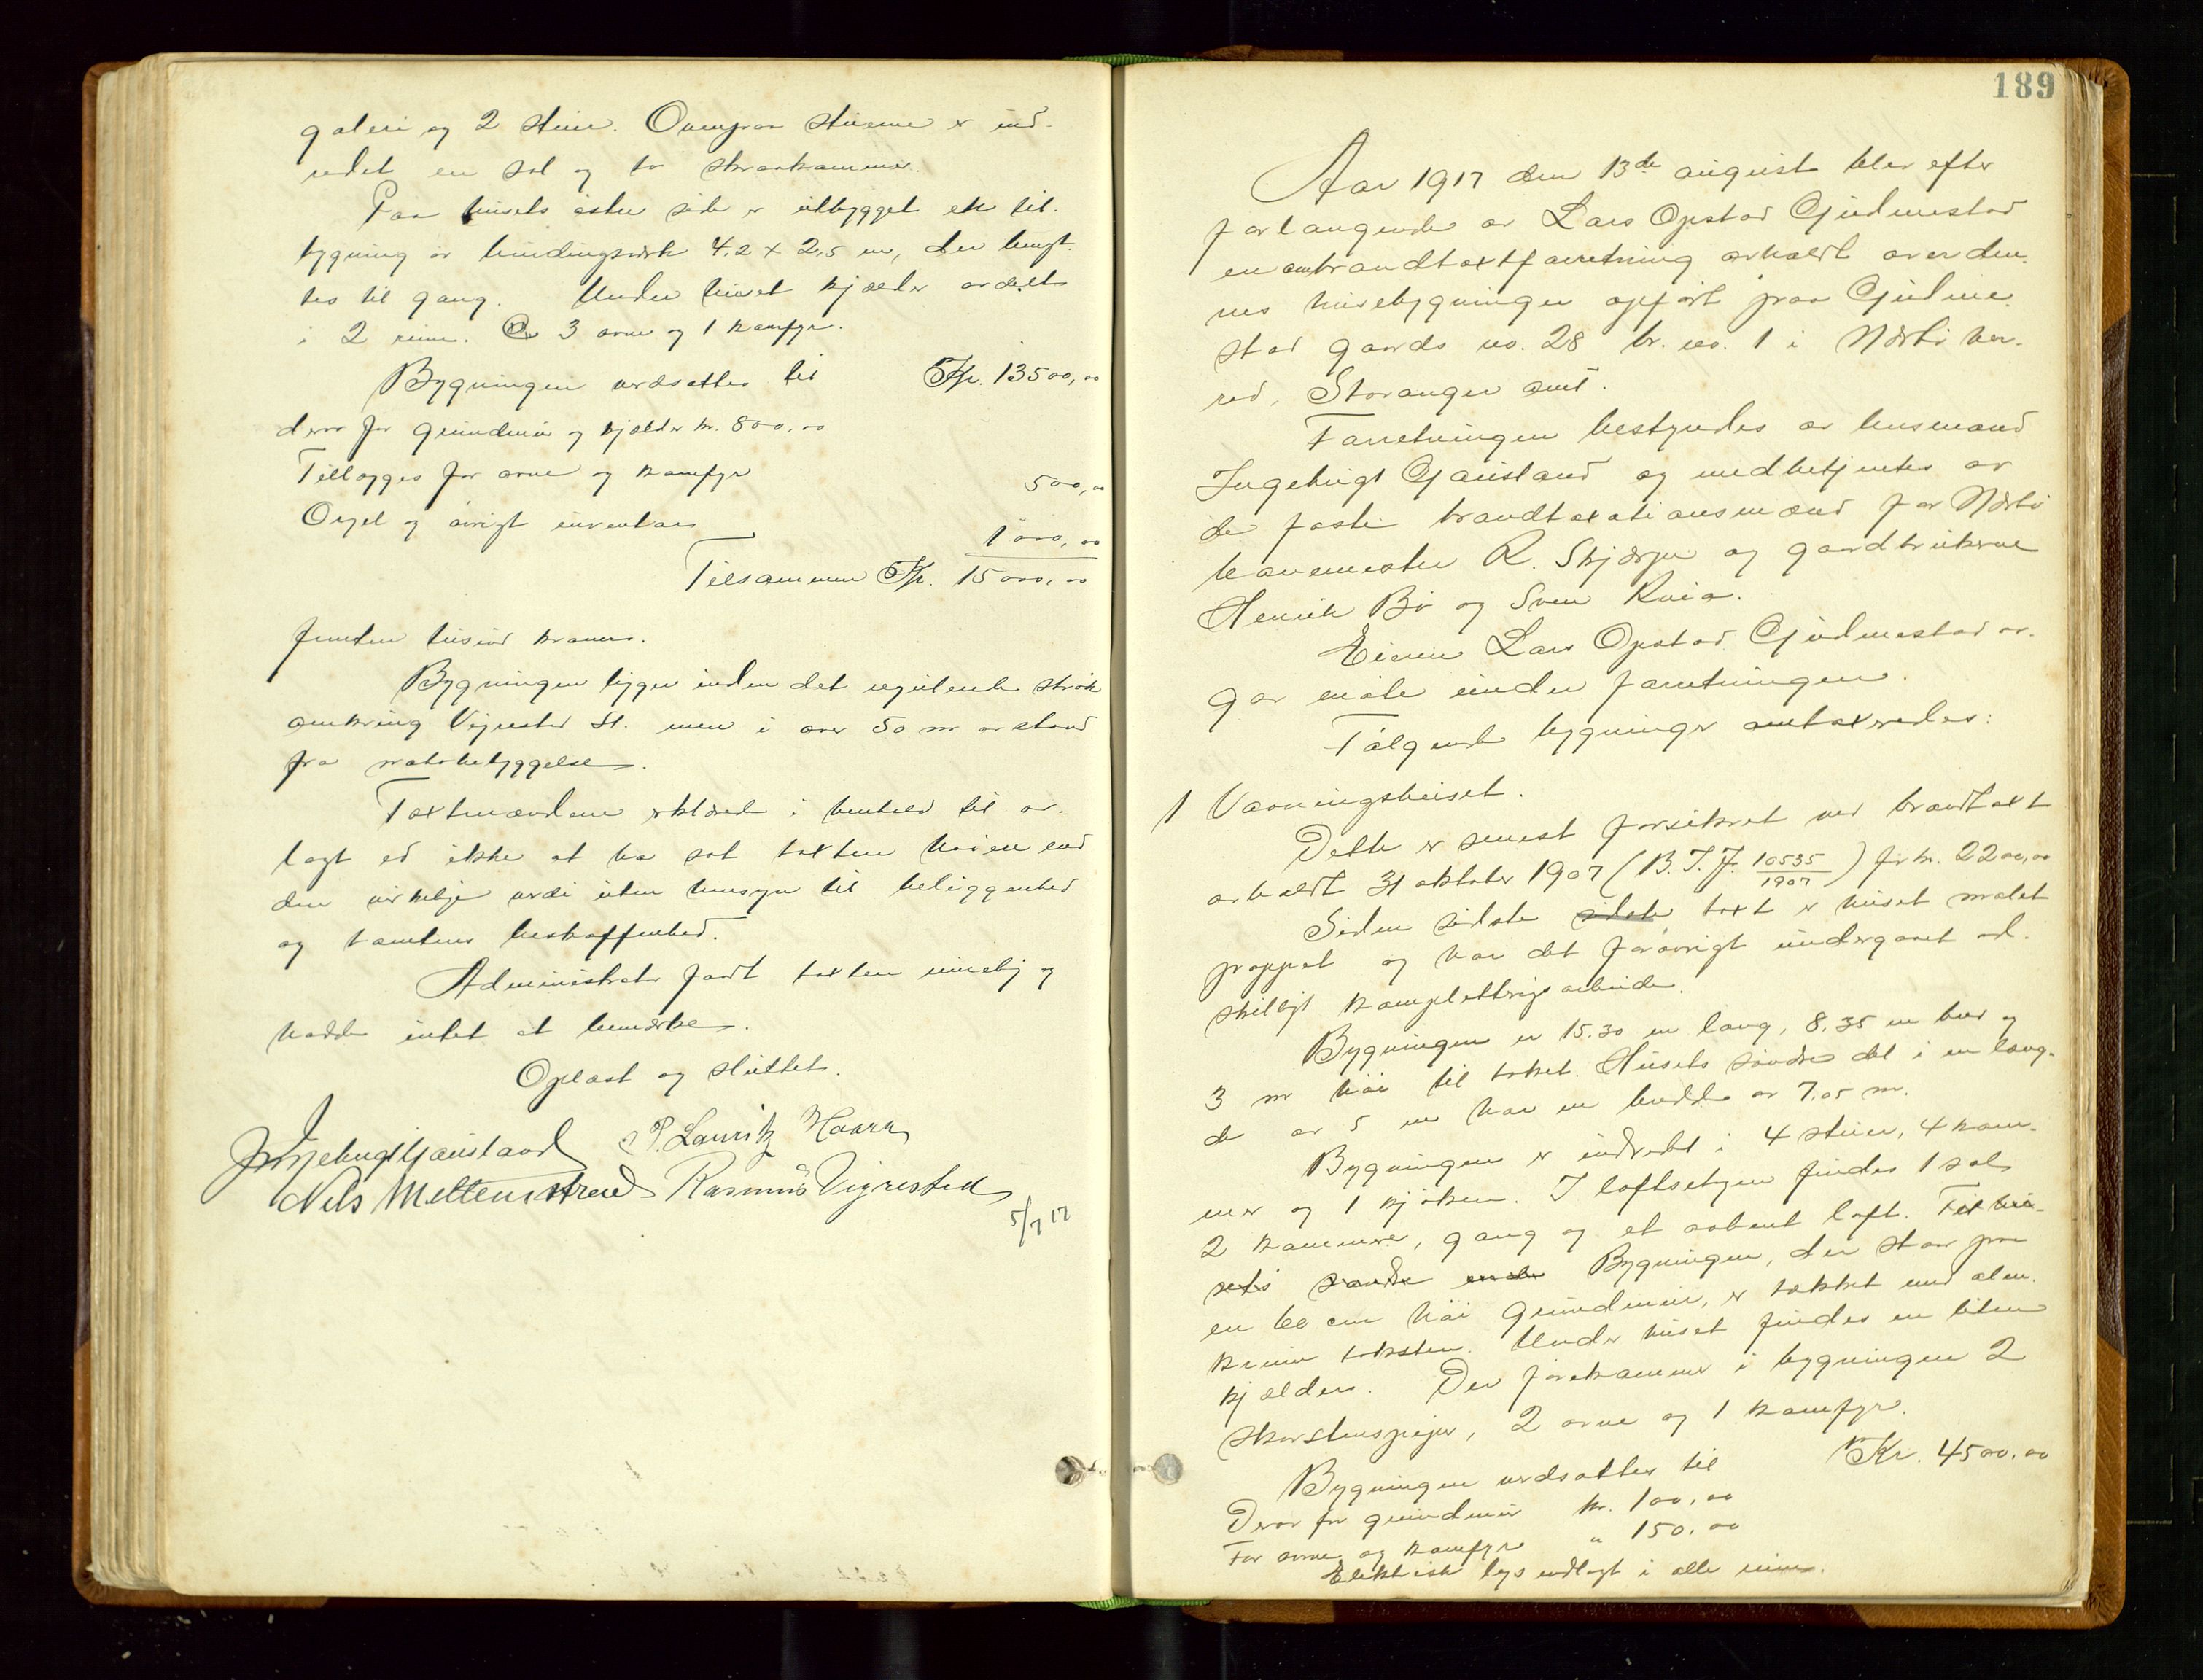 galeri og 2 stuer. Ovenpaa stuerne er ind-
redet en sal og to skraakammer.
Paa husets østre side er utbygget en til-
bygning av bindingsverk 4.2 x 2,5 m, der benyt-
tes til gang. Under huset kjælder avdelt
i 2 rum. 3 ovne og 1 komfyr.
Bygningen verdsættes til Kr. 13500,00
derav for grundmur og kjælder kr. 800,00
Tillægges for ovne og komfyr 500,00
Orgel og øvrigt inventar 1000,00
Tilsammen Kr. 15000,00
femten tusind kroner.
Bygningen ligger inden det regulerte strøk
omkring Vigrestad St. men i over 50 m avstand
fra nabobebyggelse.
Takstmændene erklærede i henhold til av-
lagt ed ikke at ha sat taksten høiere end
den virkelige verdi uten hensyn til beliggenhed
og tomtens beskaffenhed.
Administrator fandt taksten rimelig og
hadde intet at bemærke.
Oplæst og sluttet.
Ingebrigt Gausland P. Lauritz Haarr
Nels Mellemstrand Rasmus Vigrestad
5/7 17
189
Aar 1917 den 13de august blev efter
forlangende av Lars Opstad Gudmestad
en ombrandtakstforretning avholdt over den-
nes husebygninger opført paa Gudme-
stad gaards no. 28 br. no. 1 i Nærbø her-
red, Stavanger amt.
Forretningen bestyredes av lensmand
Ingebrigt Gausland og medbetjentes av
de faste brandtaxationsmænd for Nærbø
banemester R. Skjærpe og gaardbrukerne
Henrik Bø og Sven Kvia.
Eieren Lars Opstad Gudmestad av-
gav møte under forretningen.
Følgende bygninger omtaxeredes:
1 Vaaningshuset.
Dette er senest forsikret ved brandtakst
avholdt 31 oktober 1907 (B.T.J. 10535/1907) for kr. 2200,00
Siden sidste sidste takst er huset malet
proppet og har det forøvrigt undergaaet ad-
skilligt kompletteringsarbeide.
Bygningen er 15.30 m lang, 8.35 m bred og
3 m høi til taket. Husets søndre del i en læng-
de av 5 m har en bredde av 7.05 m.
Bygningen er indredet i 4 stuer, 4 kam-
mer og 1 kjøken. I loftsetagen findes 1 sal
2 kammere, gang og et aabent loft. Til hu-
sets søndre ende Bygningen, der staar paa
en 60 cm høi grundmur, er tækket med alm.
krum taksten. Under huset findes en liten
kjælder. Der forekommer i bygningen 2
skorstenspiper, 2 ovne og 1 komfyr.
Bygningen verdsættes til Kr. 4500.00
Derav for grundmur kr. 100,00
For ovne og komfyr " 150,00
Elektrisk lys indlagt i alle rum.